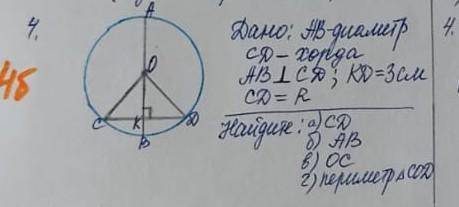 4.
4б
A
O
C
K
D
B
Дано: AB-диаметр
CD - хорда
AB ⊥ CD; KD=3см
CD = R
Найдите: а) CD
б) AB
в) OC
г) периметр △COD
4.